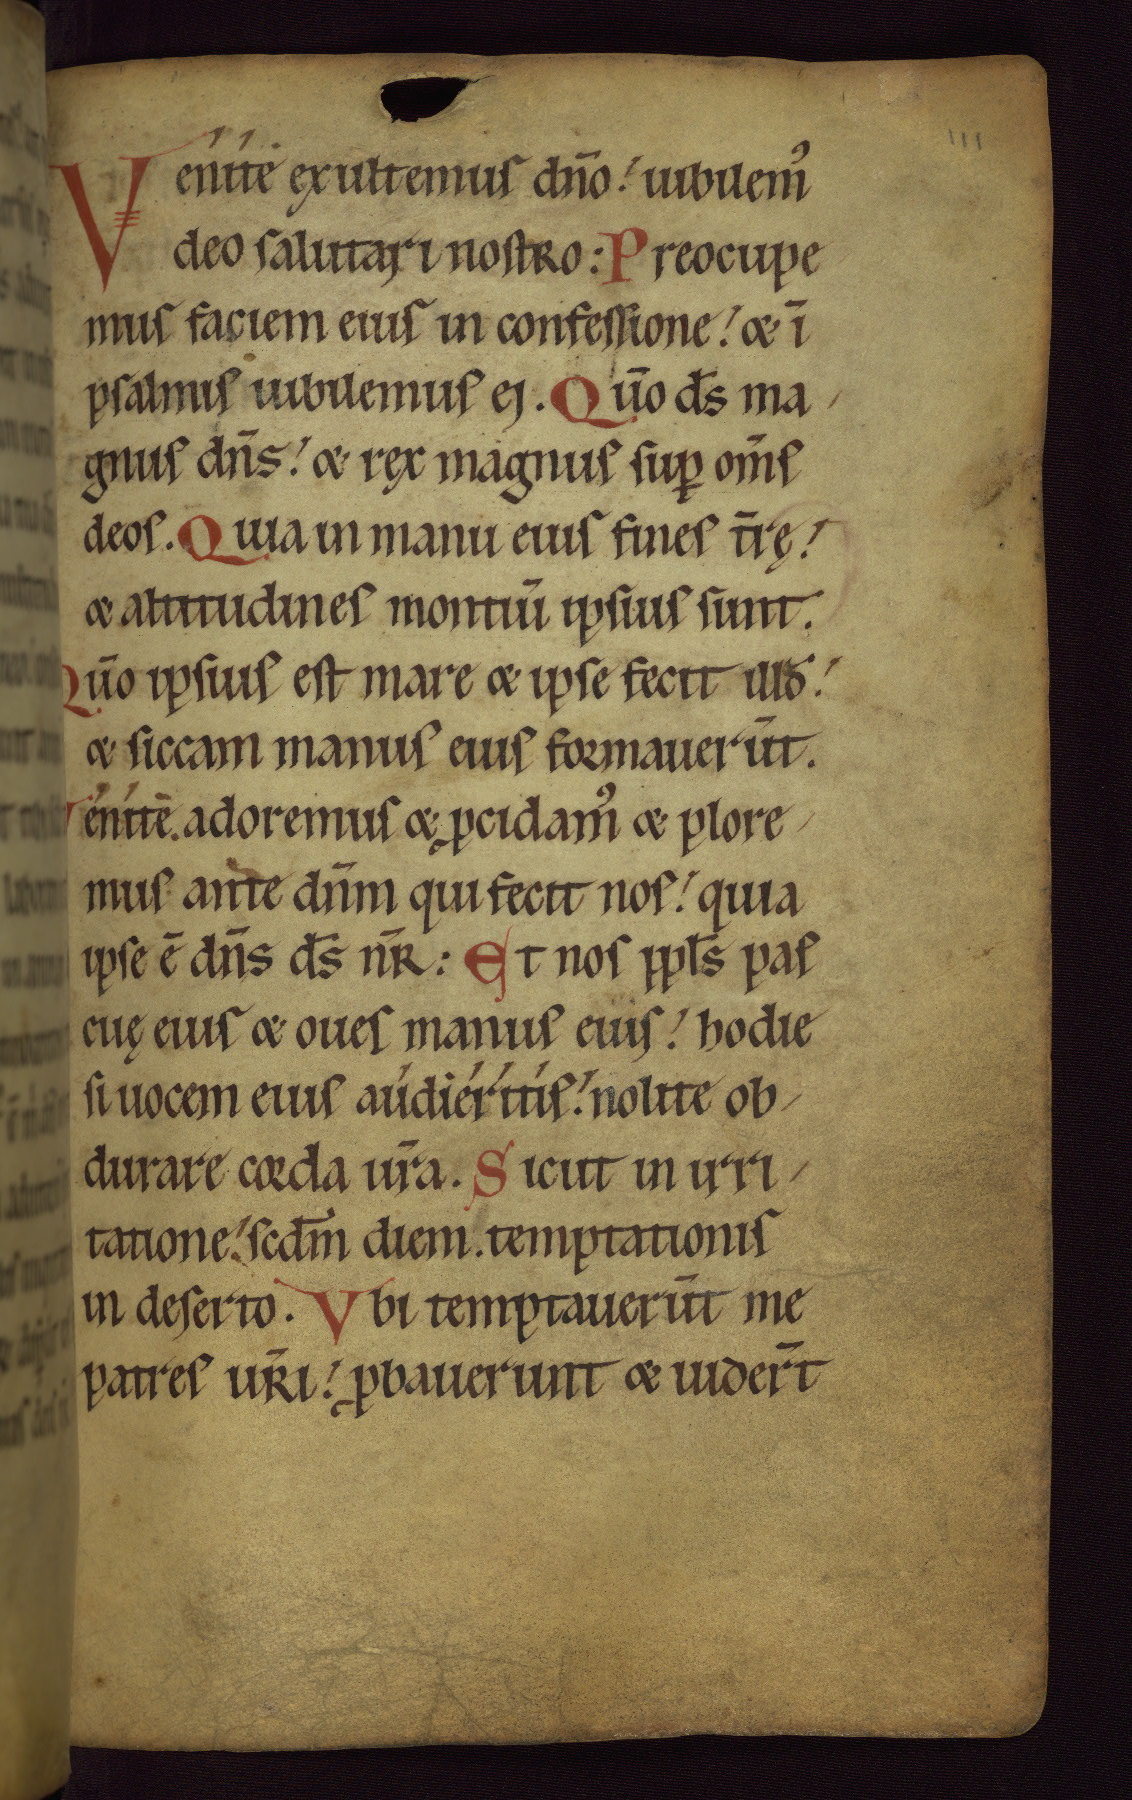 Venite exultemus dño: iubilem᷒
deo salutari nostro: Preocupe
mus faciem eius in confessione: & ī
psalmis iubilemus ei. Qūo d̄s ma
gnus dñs: & rex magnus sup̱ om̄s
deos. Quia in manu eius fines t̄rę:
& altitudines montiū ipsius sunt.
Qūo ipsius est mare & ipse fecit illđ:
& siccam manus eius formauerūt.
Venite adoremus & ꝓcidam᷒ & plore
mus ante dñm qui fecit nos: quia
ipse ē dñs d̄s nr̄: Et nos ppl̄s pas
cuę eius & oues manus eius: hodie
si uocem eius audieritis: nolite ob
durare corda ur̄a. Sicut in irri
tatione: scdm̄ diem temptationis
in deserto. Vbi temptauerūt me
patres ur̄i: ꝓbauerunt & uider̄t